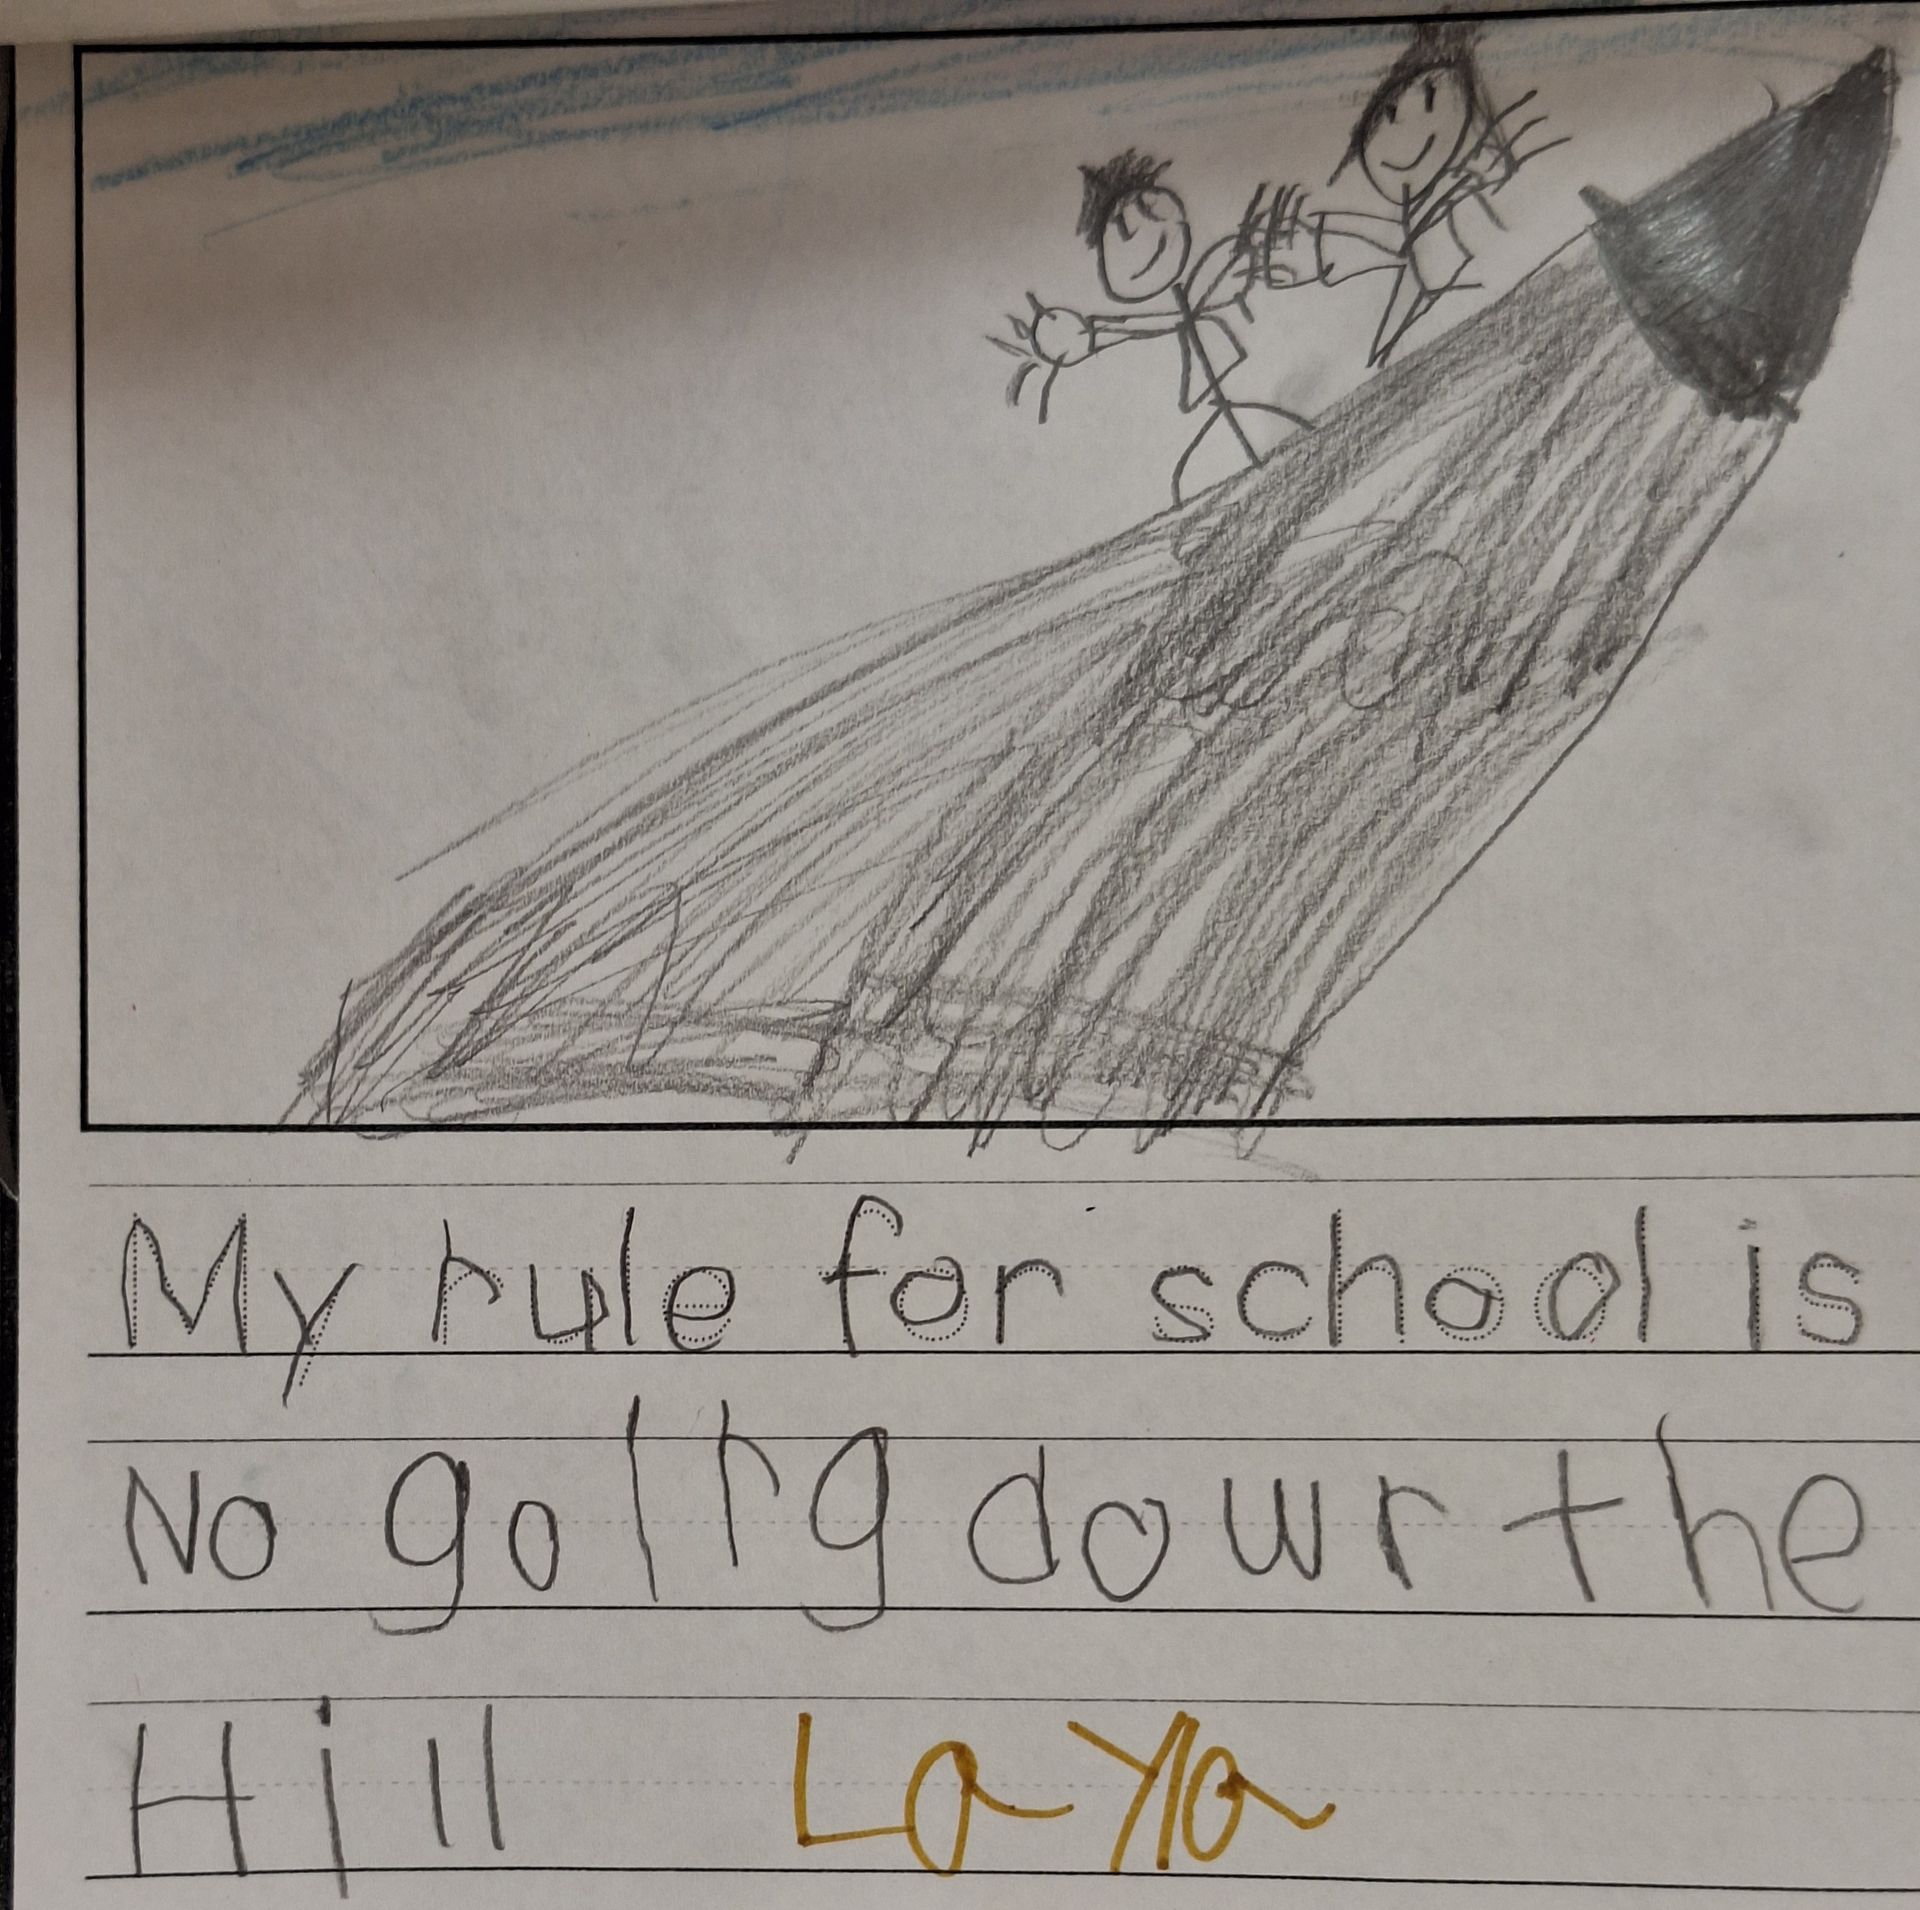 My rule for school is
No going down the
Hill Layla